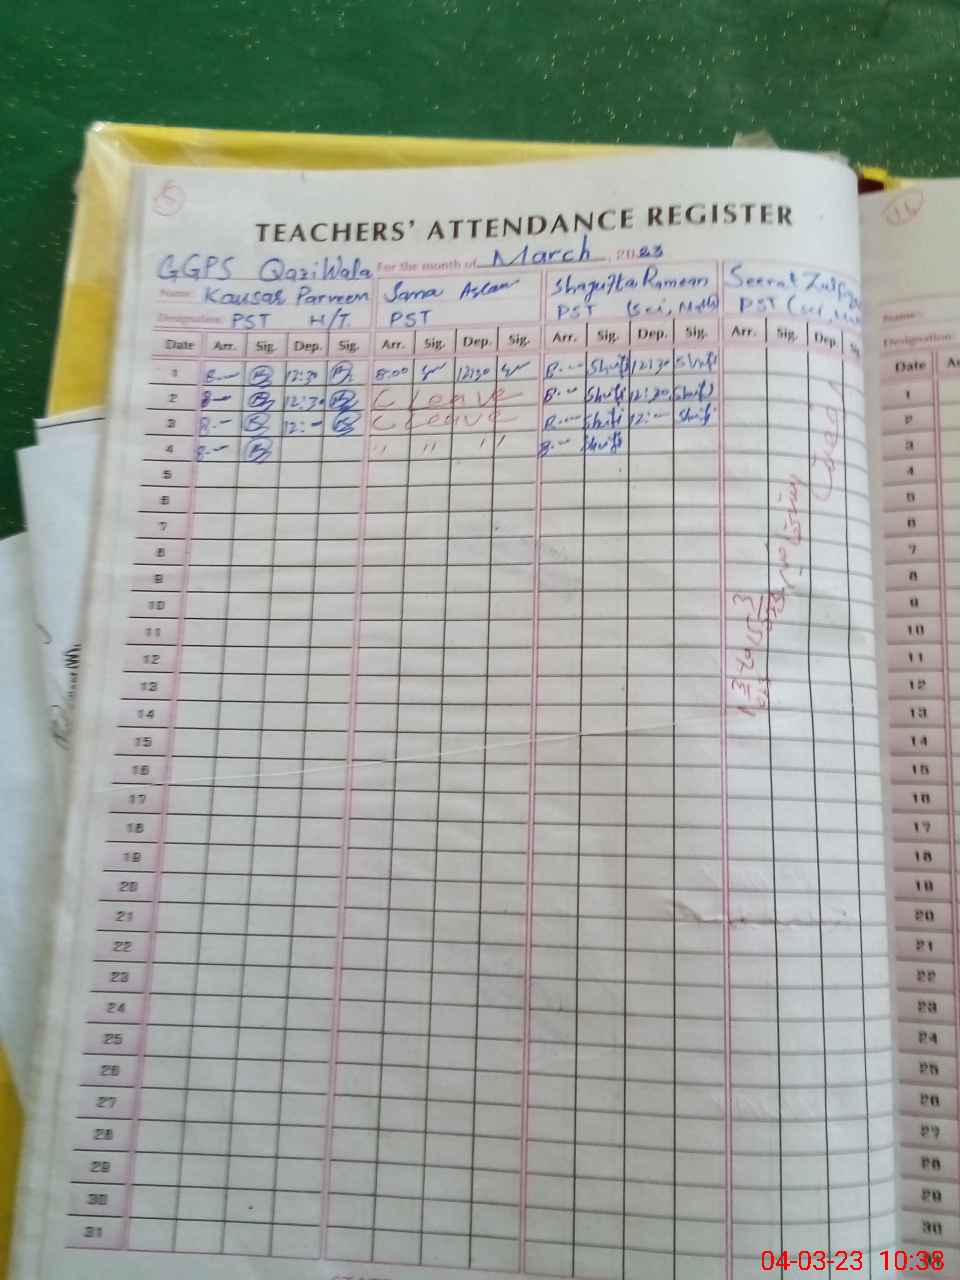 5
16
TEACHERS' ATTENDANCE REGISTER
GGPS QaziWala For the month of March, 2023
Name: Kausar Parveen Sana Aslam Shagufta Rameen Seerat
Designation: PST H/T. PST PST (Sci, Math) PST (Sci,
Date Arr. Sig. Dep. Sig. Arr. Sig. Dep. Sig. Arr. Sig. Dep. Sig. Arr. Sig. Dep.
1 8.— 12:30 8:00 12:30 8.— Shufi 12:30 Shufi
2 8— 12:30 C leave 8.— Shufi 12:30 Shufi
3 8.— 12:— C leave 8.— Shufi 12:— Shufi
4 8.— " " " 8.— Shufi
5
6
7
8
9
10
11
12
13
14
15
16
17
18
19
20
21
22
23
24
25
26
27
28
29
30
31
Name:
Designation:
Date
1
2
3
4
5
6
7
8
9
10
11
12
13
14
15
16
17
18
19
20
21
22
23
24
25
26
27
28
29
30
04-03-23 10:38